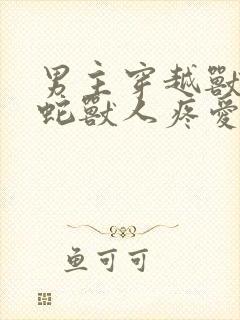 男主穿越獸
蛇獸人疼愛
鱼可可